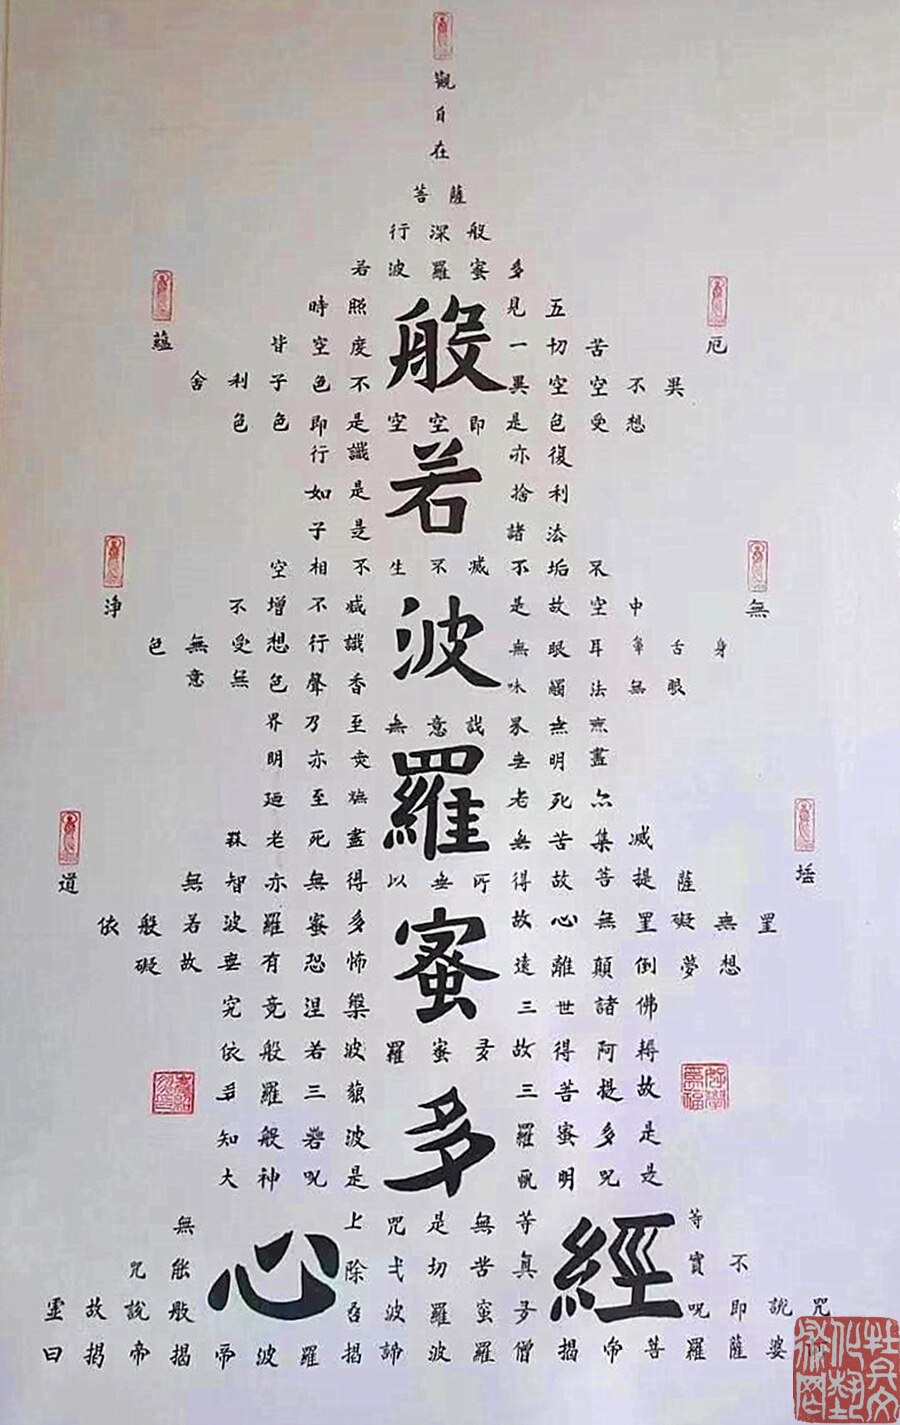 觀
自
在
菩薩
行深般
若波羅蜜多
時照見五
蘊皆空度一切苦厄
舍利子色不異空空不異
色色即是空空即是色受想
行識亦復
如是捨利
子是諸法
空相不生不滅不垢不
淨不增不減是故空中無
色無受想行識無眼耳鼻舌身
意無色聲香味觸法無眼
界乃至無意識界無無
明亦無無明盡
乃至無老死亦
無老死盡無苦集滅
道無智亦無得以無所得故菩提薩埵
依般若波羅蜜多故心無罣礙無罣
礙故無有恐怖遠離顛倒夢想
究竟涅槃三世諸佛
依般若波羅蜜多故得阿耨
多羅三藐三菩提故
知般若波羅蜜多是
大神咒是明咒是
無上咒是無等等
咒能除一切苦真實不
靈故說般若波羅蜜多咒即說咒
曰揭帝揭帝波羅揭諦波羅僧揭帝菩羅薩婆
般
若
波
羅
蜜
多
心經